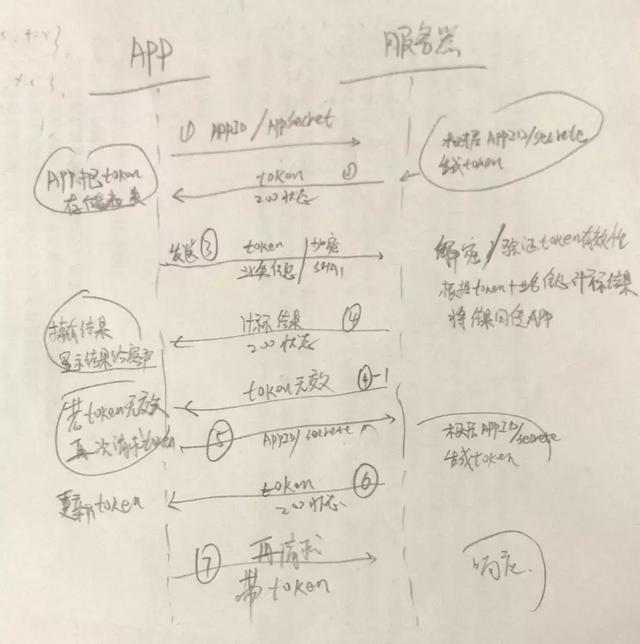 APP
服务器
① APPID/Appsecret
根据APPID/secrete
生成token
APP把token
存储起来
token ②
200状态
发送 ③ token /加密
业务信息/SHA1
解密/验证token有效性
根据token+业务信息计算结果
将结果回传APP
计算结果 ④
200状态
接收结果
显示结果给客户
token无效 ④-1
若token无效
再次请求token
⑤ APPID/secrete
根据APPID/secrete
生成token
token ⑥
200状态
更新token
⑦ 再请求
带token
响应.